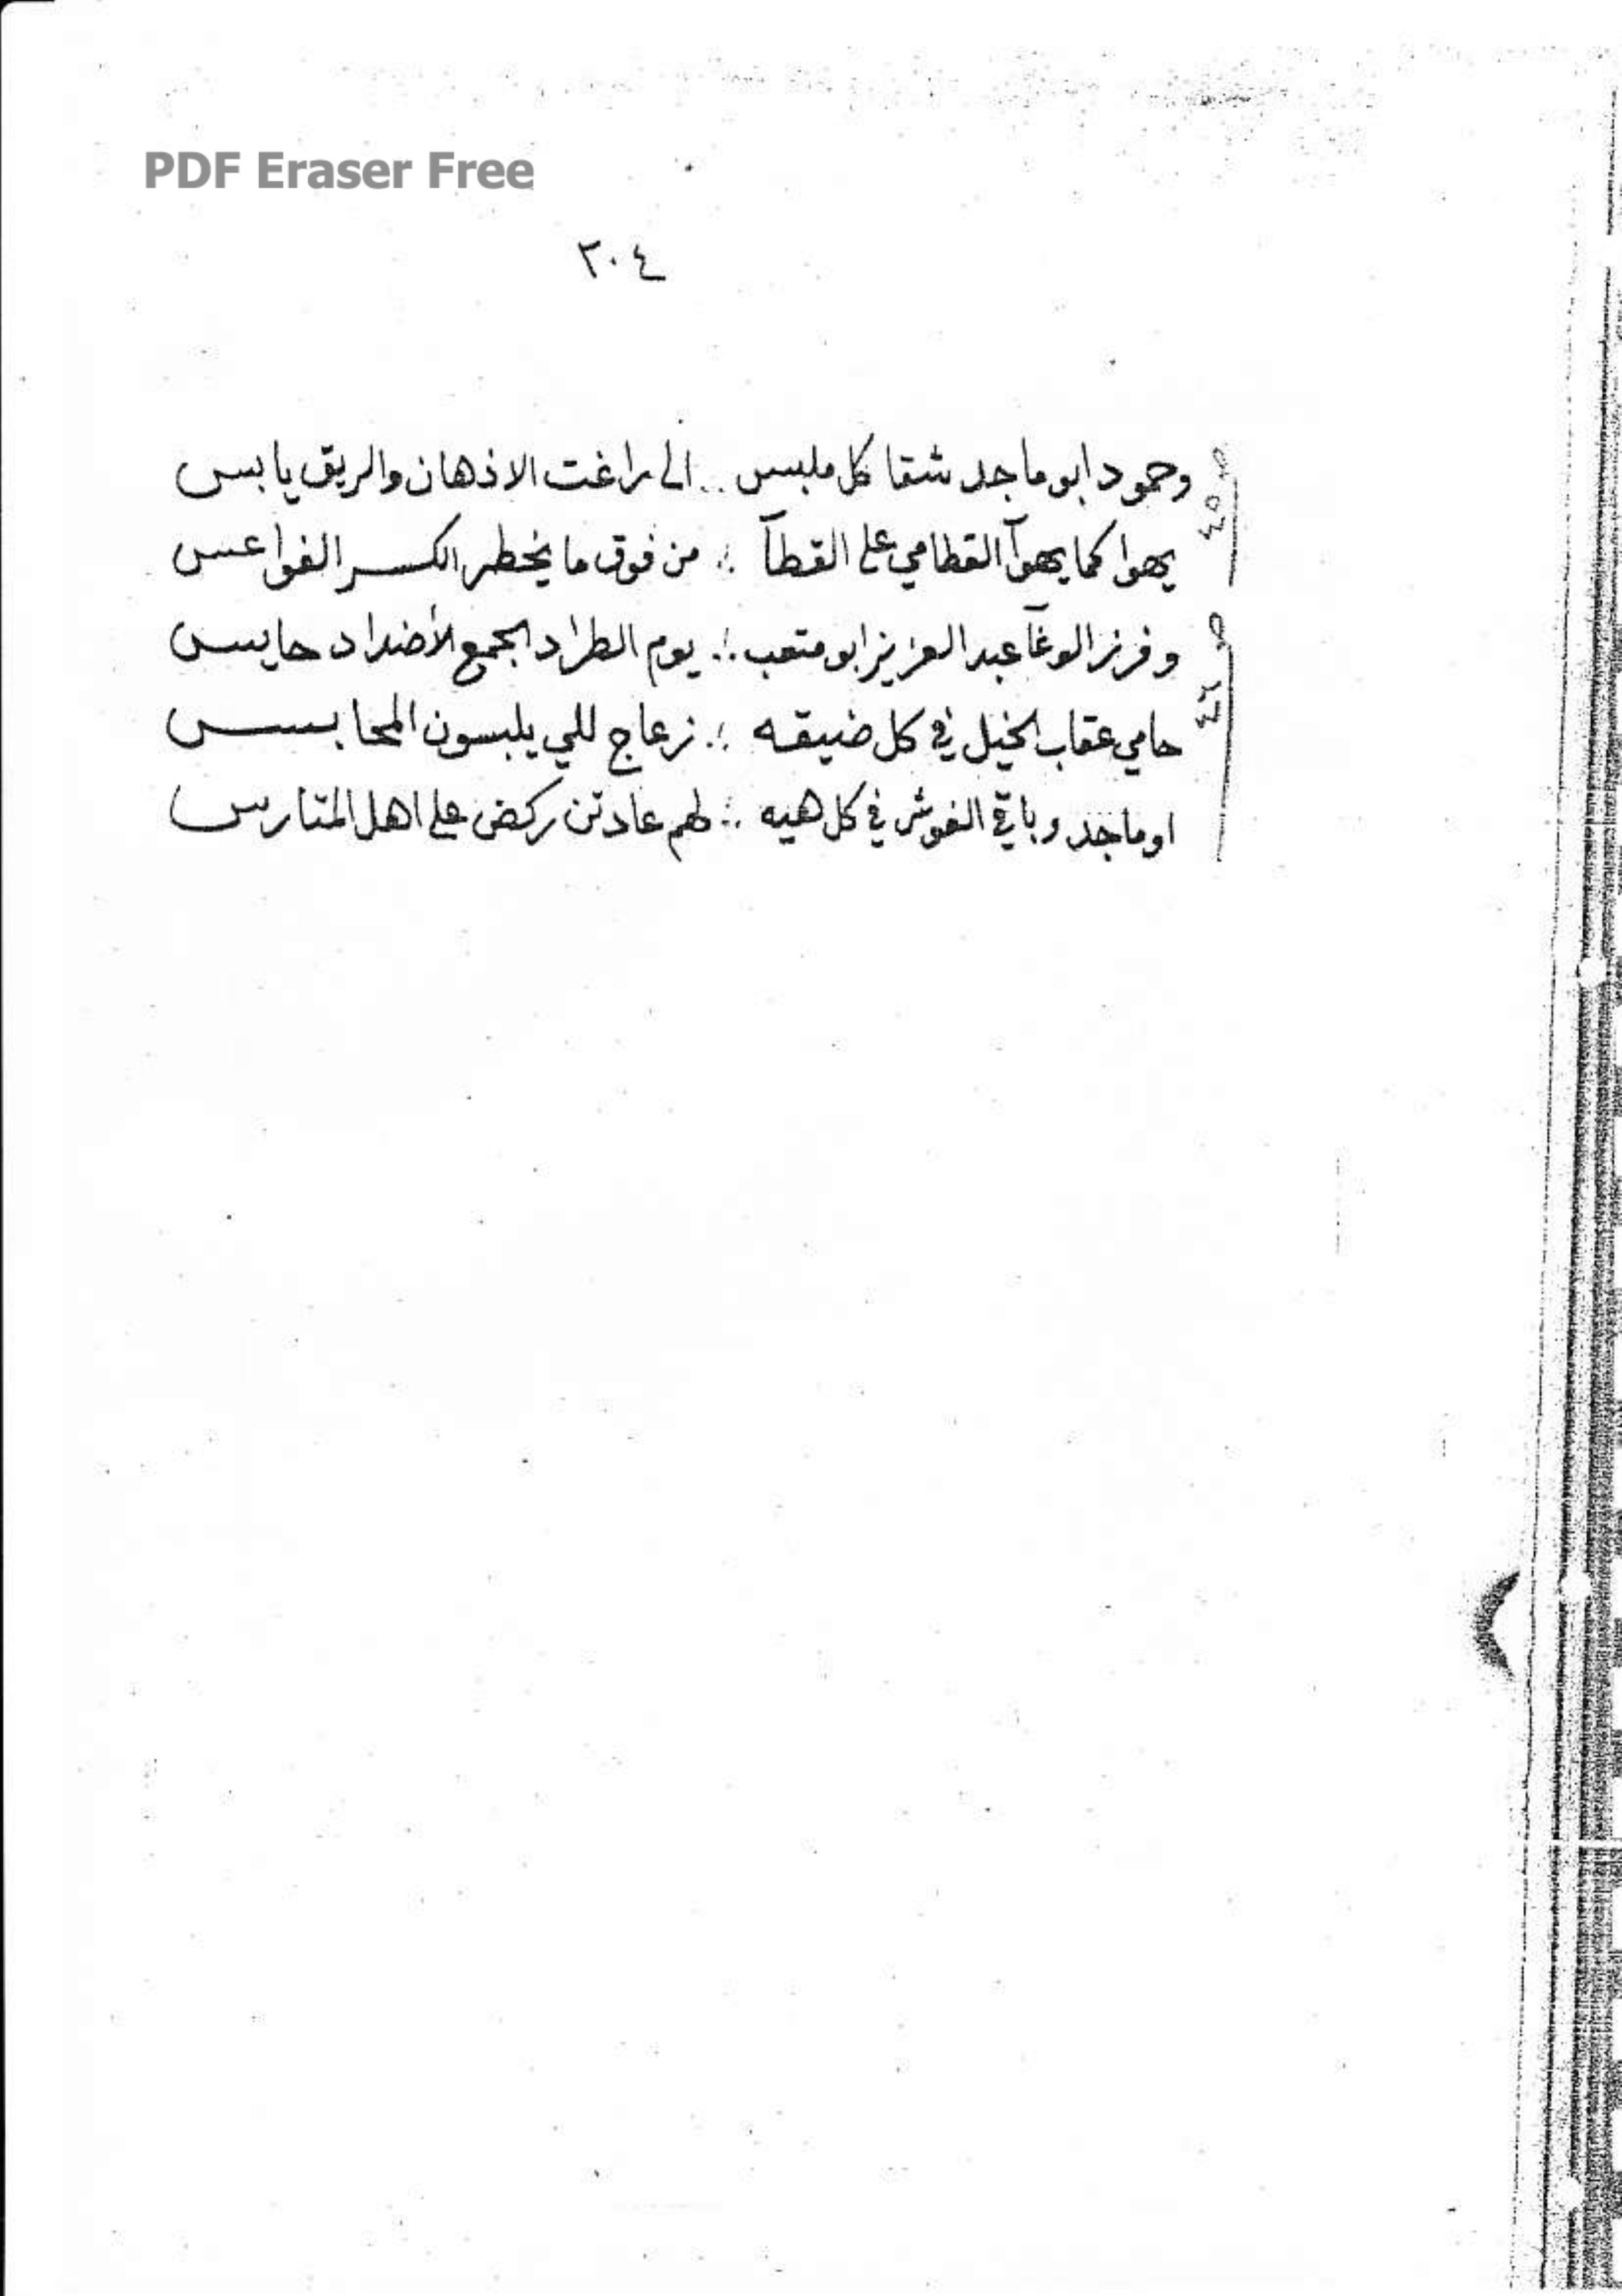 PDF Eraser Free
٢٠٤
وحمود ابو ماجد شقا كل ملبس .. الى راغت الاذهان والريق يابس
يهوا كما يهوآ القطامي على القطآ ∴ من فوق ما يخطر الكسر الفواعس
و فرز الوغآ عبد العزيز ابو متعب ∴ يوم الطراد الجمع الأضداد حايس
حامي عقاب الخيل في كل ضيقه ∴ زعاج للي يلبسون المحابس
او ماجد و باقي الغوش في كل هيه ∴ لهم عادتن ركض على اهل المتارس